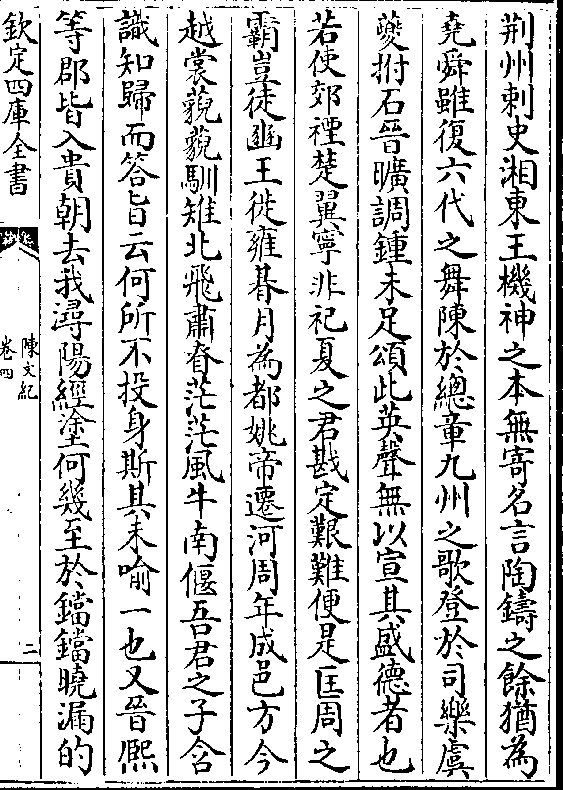 荆州刺史湘東王機神之本無寄名言陶鑄之餘猶為
堯舜雖復六代之舞陳於總章九州之歌登於司樂虞
夔拊石晉曠調鍾未足頌此英聲無以宣其盛德者也
若使郊禋楚翼寧非祀夏之君戡定艱難便是匡周之
霸豈徒豳王徙雍朞月為都姚帝遷河周年成邑方今
越裳藐藐馴雉北飛肅脊茫茫風牛南偃吾君之子含
識知歸而答旨云何所不投身斯其未喻一也又晉熙
等郡皆入貴朝去我潯陽經塗何幾至於鐺鐺曉漏的
欽定四庫全書
陳文紀
卷四
二